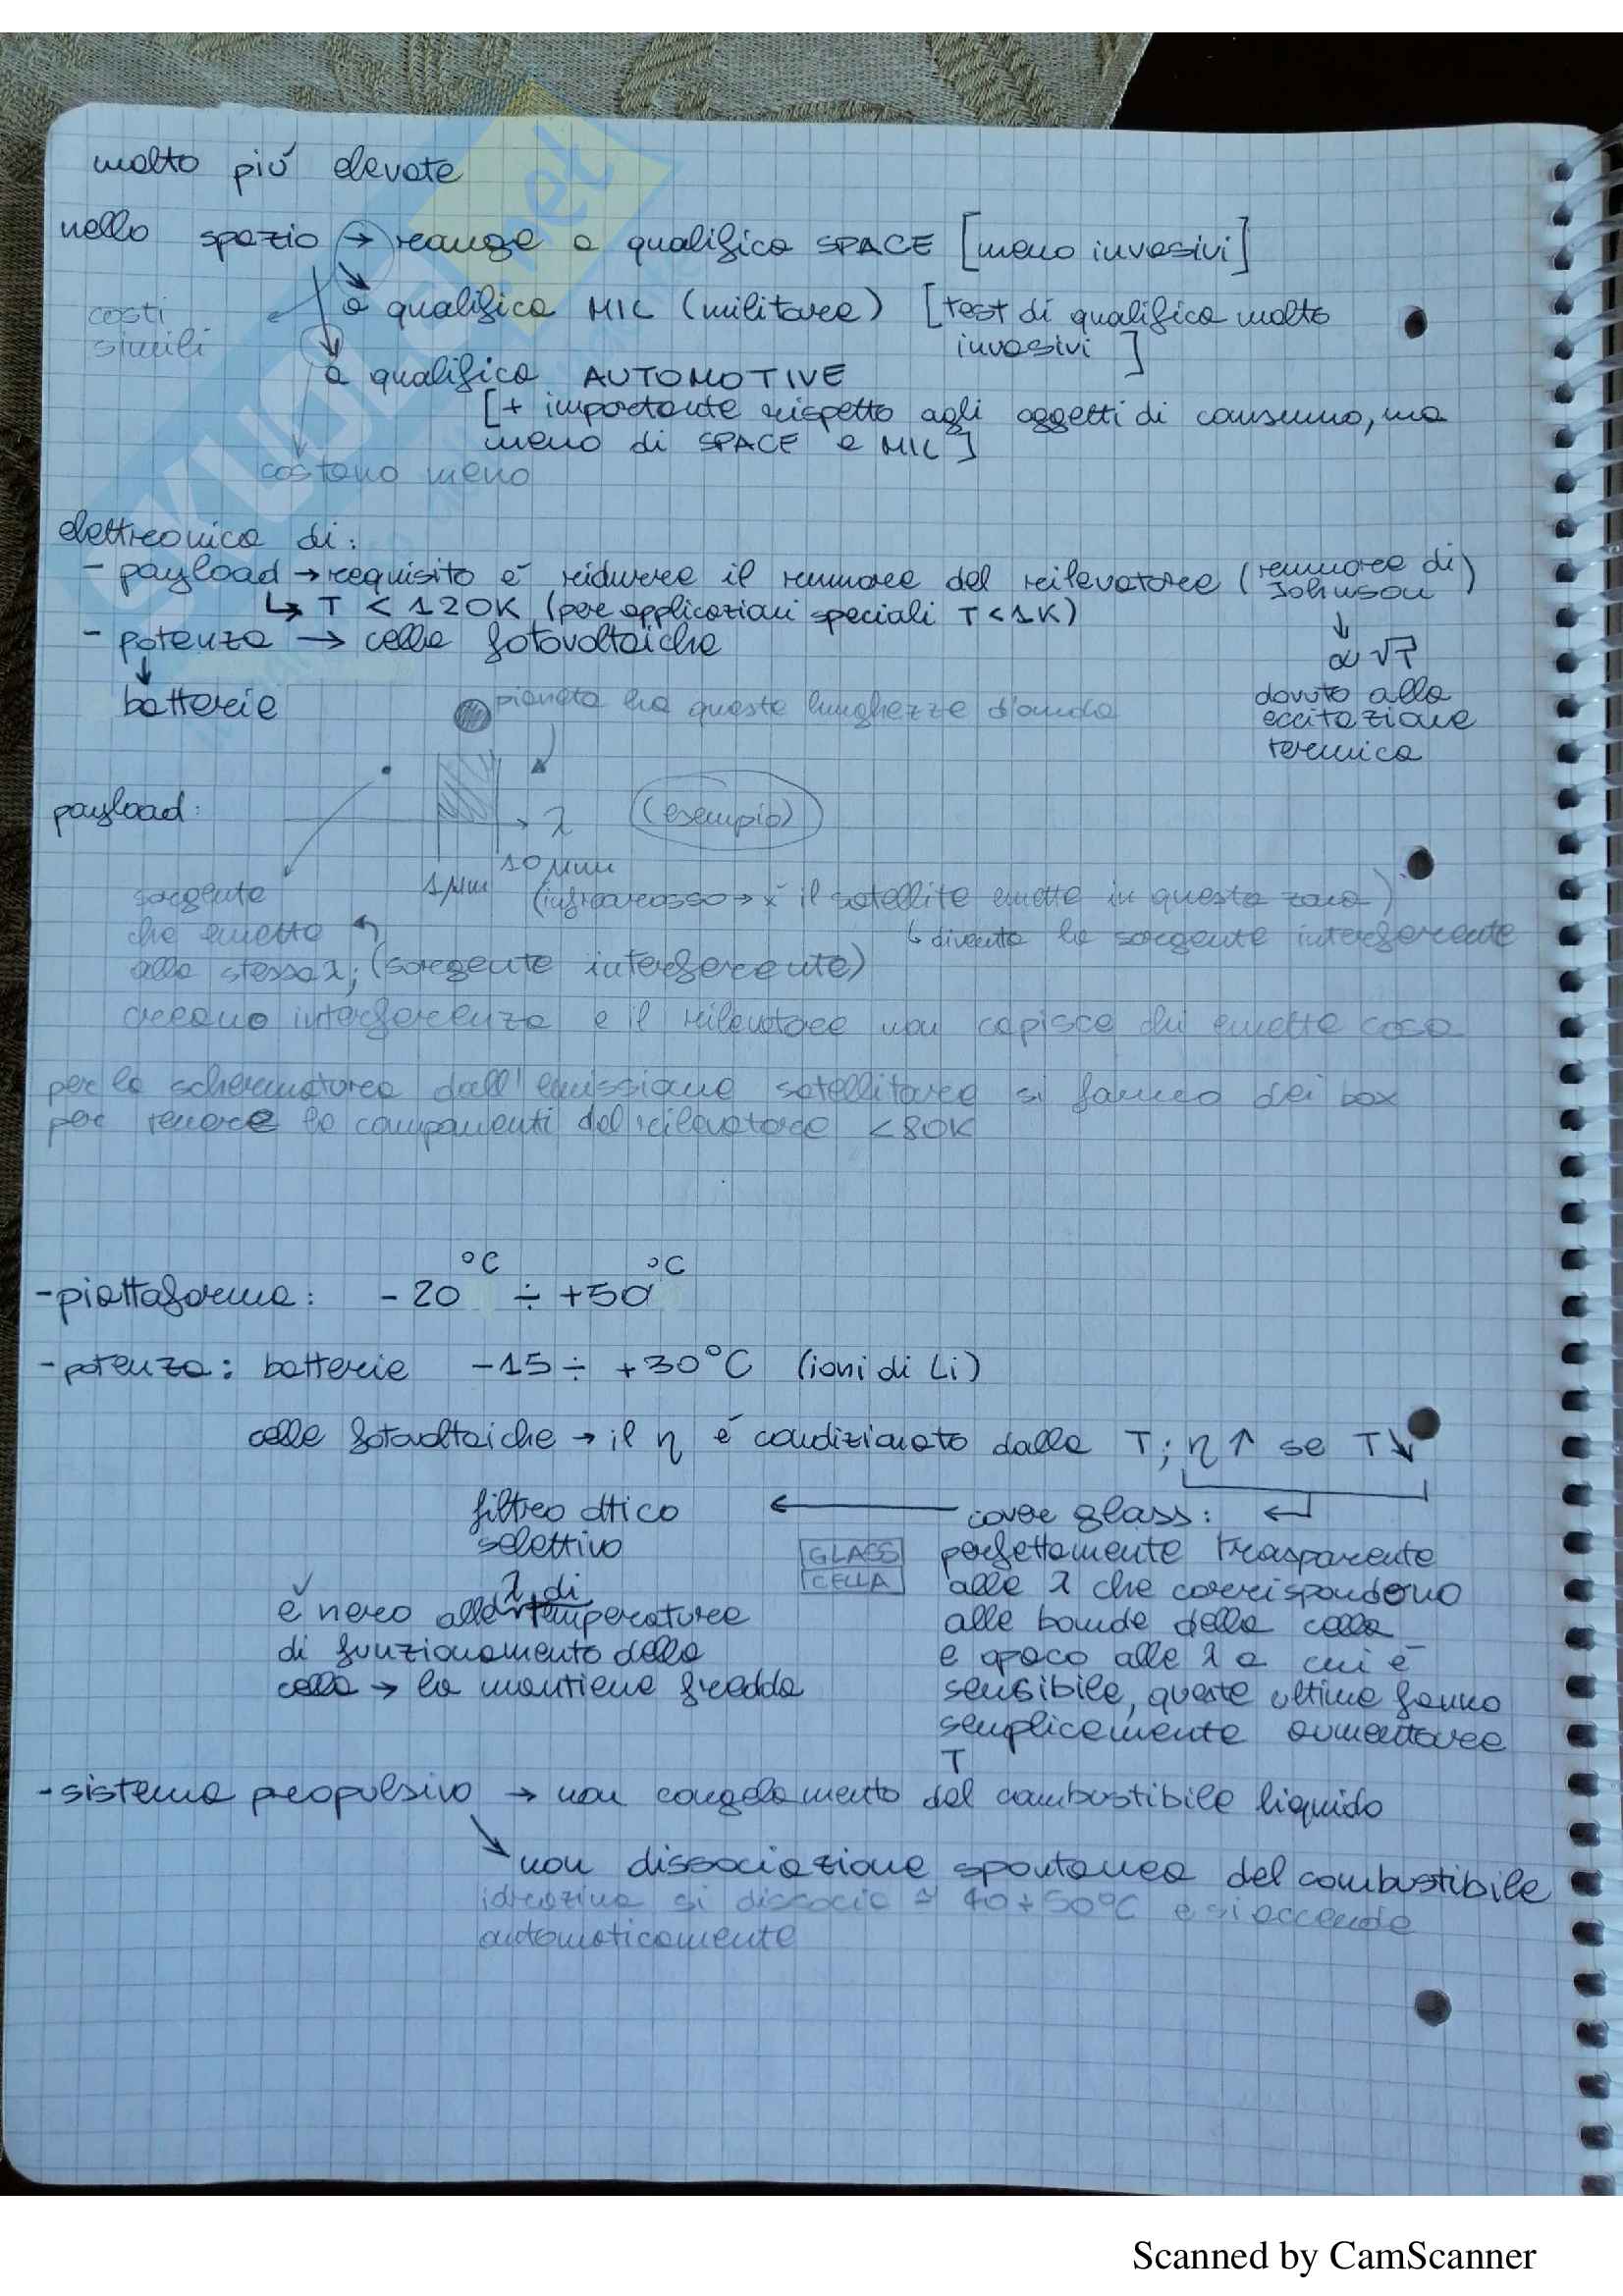 molto più elevate
nello spazio → range a qualifica SPACE [meno invasivi]
a qualifica MIL (militare) [test di qualifica molto
invasivi]
costi
simili
a qualifica AUTOMOTIVE
[+ importante rispetto agli oggetti di consumo, ma
meno di SPACE e MIL]
costano meno
elettronica di:
- payload → requisito è ridurre il rumore del rilevatore (rumore di
Johnson)
↳ T < 120K (per applicazioni speciali T < 1K)
- potenza → celle fotovoltaiche
∝ √T
↓
batterie
dovuto alla
eccitazione
termica
pianeta ha queste lunghezze d'onda
payload:
λ (esempio)
1 μm 10 μm
(infrarosso → x' il satellite emette in questa zona)
↳ diventa la sorgente interferente
sorgente
che emette
alla stessa λ; (sorgente interferente)
creano interferenza e il rilevatore non capisce chi emette cosa
per la schermatura dall'emissione satellitare si fanno dei box
per tenere le componenti del rilevatore < 80K
- piattaforma: - 20 °C ÷ +50 °C
- potenza: batterie -15 ÷ +30°C (ioni di Li)
celle fotovoltaiche → il η è condizionato dalla T; η ↑ se T ↓
filtro ottico ← cover glass: ↵
selettivo
GLASS
CELLA
perfettamente trasparente
alle λ che corrispondono
alle bande della cella
e opaco alle λ a cui è
sensibile, queste ultime fanno
semplicemente aumentare
T
è nero alle λ di temperature
di funzionamento della
cella → la mantiene fredda
- sistema propulsivo → non congelamento del combustibile liquido
non dissociazione spontanea del combustibile
idrazina si dissocia ≃ 40÷50°C e si accende
automaticamente
Scanned by CamScanner